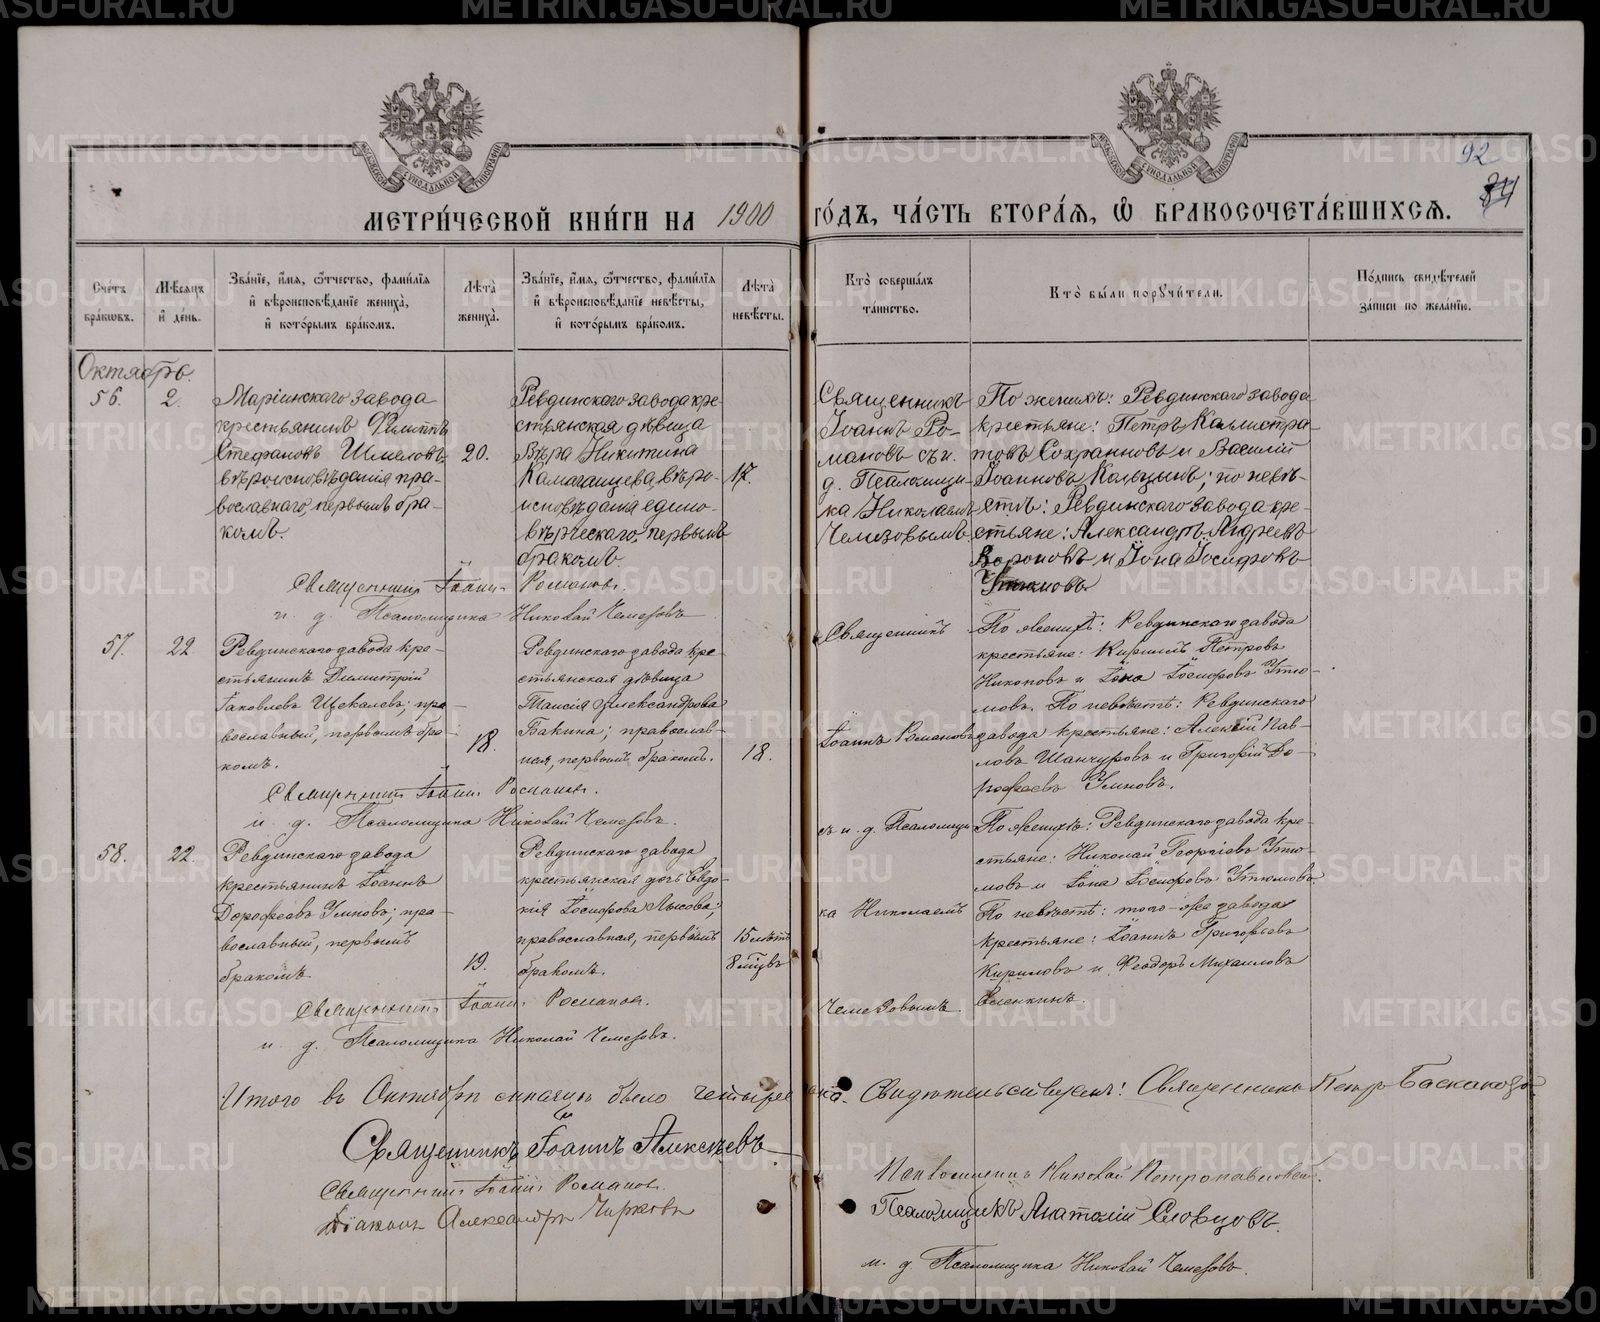 МЕТРИ́ЧЕСКОЙ КНИ́ГИ НА 1900 ГО́ДЪ, ЧА́СТЬ ВТОРА́Я, Ѽ БРАКОСОЧЕТА́ВШИХСЯ.
92
84
Сче́тъ бра́ковъ.
Мѣ́сяцъ и҆ де́нь.
Зва́нїе, и҆́мя, ѻ҆́тчество, фами́лїя и҆ вѣроисповѣ́данїе жениха̀, и҆ кото́рымъ бра́комъ.
Лѣ́та̀ жениха̀.
Зва́нїе, и҆́мя, ѻ҆́тчество, фами́лїя и҆ вѣроисповѣ́данїе невѣ́сты, и҆ кото́рымъ бра́комъ.
Лѣ́та̀ невѣ́сты.
Кто̀ соверша́лъ та́инство.
Кто̀ бы́ли порꙋчи́тели.
По́дпись свидѣ́телей за́писи по жела́нїю.
Октябрь.
56.
2.
Маріинскаго завода
крестьянинъ Филиппъ
Стефановъ
вѣроисповѣданія пра-
вославнаго, первымъ бра-
комъ.
20.
Ревдинскаго завода кре-
стьянская дѣвица
Вѣра Никитина
вѣро-
исповѣданія едино-
вѣрческаго, первымъ
бракомъ.
17.
Священникъ
Іоаннъ Ро-
мановъ съ и.
д. Псаломщи-
ка Николаемъ
Чемезовымъ.
По женихѣ: Ревдинскаго завода
крестьяне: Петръ Каллистра-
товъ и Василій
Іоанновъ Кольцынъ; по невѣ-
стѣ: Ревдинскаго завода кре-
стьяне: Александръ Андреевъ
Вороновъ и Іона Іосифовъ
Утюмовъ
Священникъ Іоаннъ Романовъ.
и. д. Псаломщика Николай Чемезовъ
57.
22
Ревдинскаго завода кре-
стьянинъ Димитрій
Іаковлевъ Щекалевъ; пра-
вославный, первымъ бра-
комъ.
18.
Ревдинскаго завода кре-
стьянская дѣвица
Таисія Александрова
Бакина; православ-
ная, первымъ бракомъ.
18.
Священникъ
Іоаннъ Романовъ
По женихѣ: Ревдинскаго завода
крестьяне: Кириллъ Петровъ
Никоновъ и Іона Іосифовъ Утю-
мовъ. По невѣстѣ: Ревдинскаго
завода крестьяне: Алексій Пав-
ловъ Шанчуровъ и Григорій До-
рофеевъ Умновъ.
Священникъ Іоаннъ Романовъ.
и. д. Псаломщика Николай Чемезовъ.
58.
22.
Ревдинскаго завода
крестьянинъ Іоаннъ
Дорофеевъ Умновъ; пра-
вославный, первымъ
бракомъ
19.
Ревдинскаго завода
крестьянская дочь Евдо-
кія Іосифова Лысова;
православная, первымъ
бракомъ.
15 лѣтъ
8 мѣцвъ
съ и. д. Псаломщи
ка Николаемъ
Чемезовымъ.
По женихѣ: Ревдинскаго завода кре-
стьяне: Николай Георгіевъ Утю-
мовъ и Іона Іосифовъ Утюмовъ
По невѣстѣ: того-же завода
крестьяне: Іоаннъ Григорьевъ
Кириловъ и Феодоръ Михаиловъ
Еленкинъ.
Священникъ Іоаннъ Романовъ.
и. д. Псаломщика Николай Чемезовъ.
Итого въ Октябрѣ было четыре
Свидѣтельствуемъ: Священникъ Петръ
Священникъ Іоаннъ Алексѣевъ
Священникъ Іоаннъ Романовъ
Діаконъ Александръ Чирковъ
Псаломщикъ Николай Петропавловскій.
Псаломщикъ Анатолій Словцовъ.
и. д Псаломщика Николай Чемезовъ.
METRIKI.GASO-URAL.RU